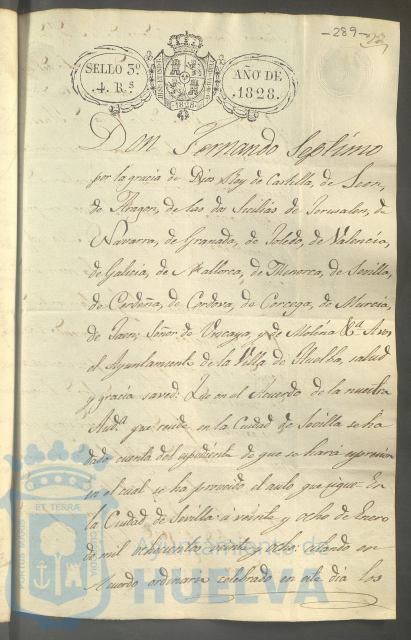 -289-
SELLO 3º
4. Rs
AÑO DE
1828.
1828
Don Fernando Septimo
por la gracia de Dios Rey de Castilla, de Leon,
de Aragon, de las dos Sicilias de Jerusalen, de
Navarra, de Granada, de Toledo, de Valencia,
de Galicia, de Mallorca, de Menorca, de Sevilla,
de Cerdeña, de Cordova, de Corcega, de Murcia,
de Jaen, Señor de Vizcaya, y de Molina &a. A vos
el Ayuntamiento de la Villa de Huelva, salud
y gracia saved: Que en el Acuerdo de la nuestra
Auda. que reside en la Ciudad de Sevilla se ha
dado cuenta del expediente de que se haria expresion
en el cual se ha proveido el auto que sigue = En
la Ciudad de Sevilla á veinte y ocho de Enero
de mil ochocientos veinte y ocho: estando en
Acuerdo ordinario celebrado en este dia los
ET TERRÆ
PORTUS MARIS
CUSTODIA
Ayuntamiento de
HUELVA